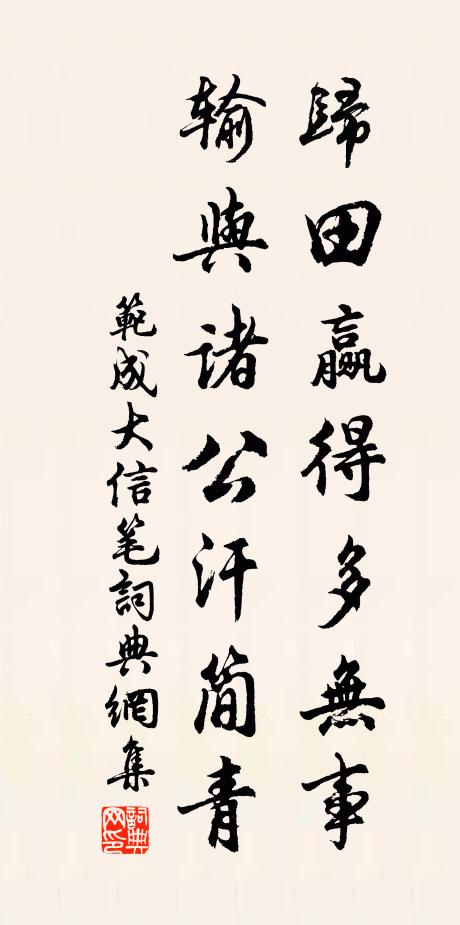 歸田贏得多無事
輸與諸公汗简青
範成大信笔詞典網集
詞典网印